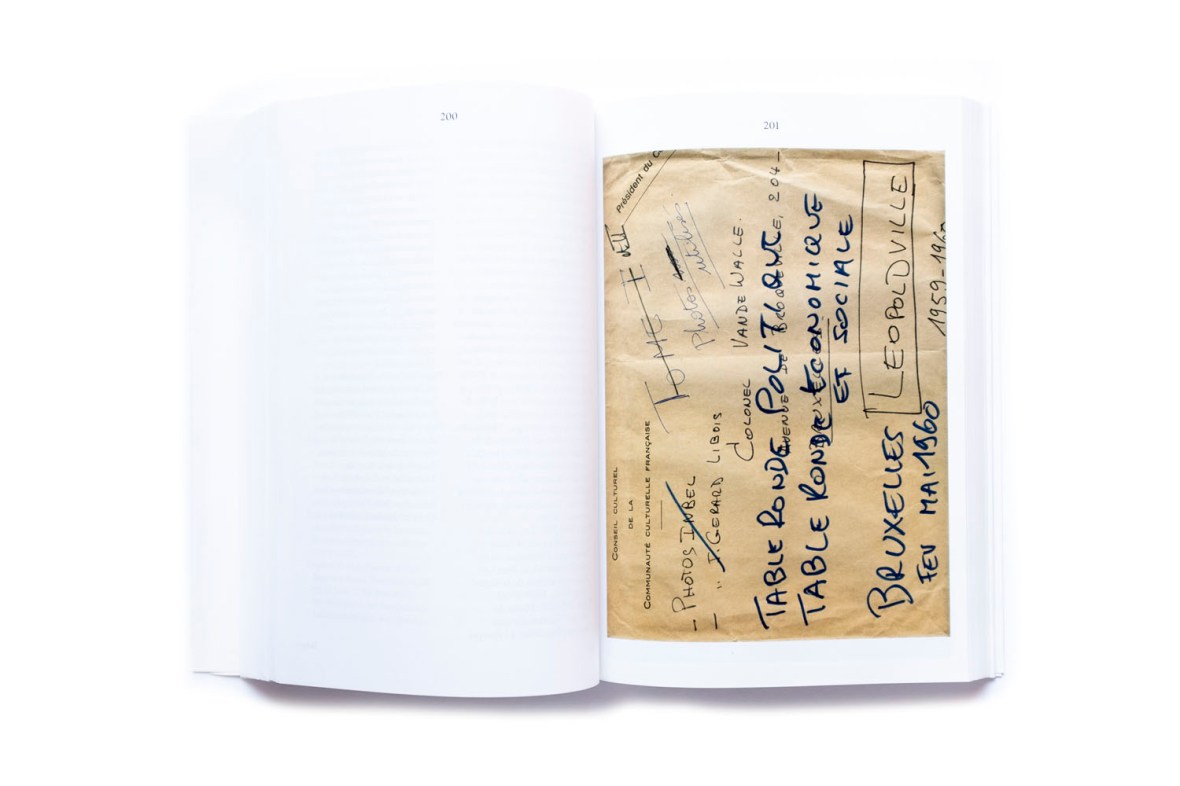 200
201
Président du C
CONSEIL CULTUREL
DE LA
COMMUNAUTÉ CULTURELLE FRANÇAISE
TOME I
Photos
utilisées
- PHOTOS INBEL
- " J. GERARD LIBOIS
COLONEL VANDEWALLE.
DE BROQUEVILLE, 204 -
TABLE RONDE POLITIQUE
TABLE RONDE ECONOMIQUE
ET SOCIALE
BRUXELLES
FEV MAI 1960
LEOPOLDVILLE
1959-1960